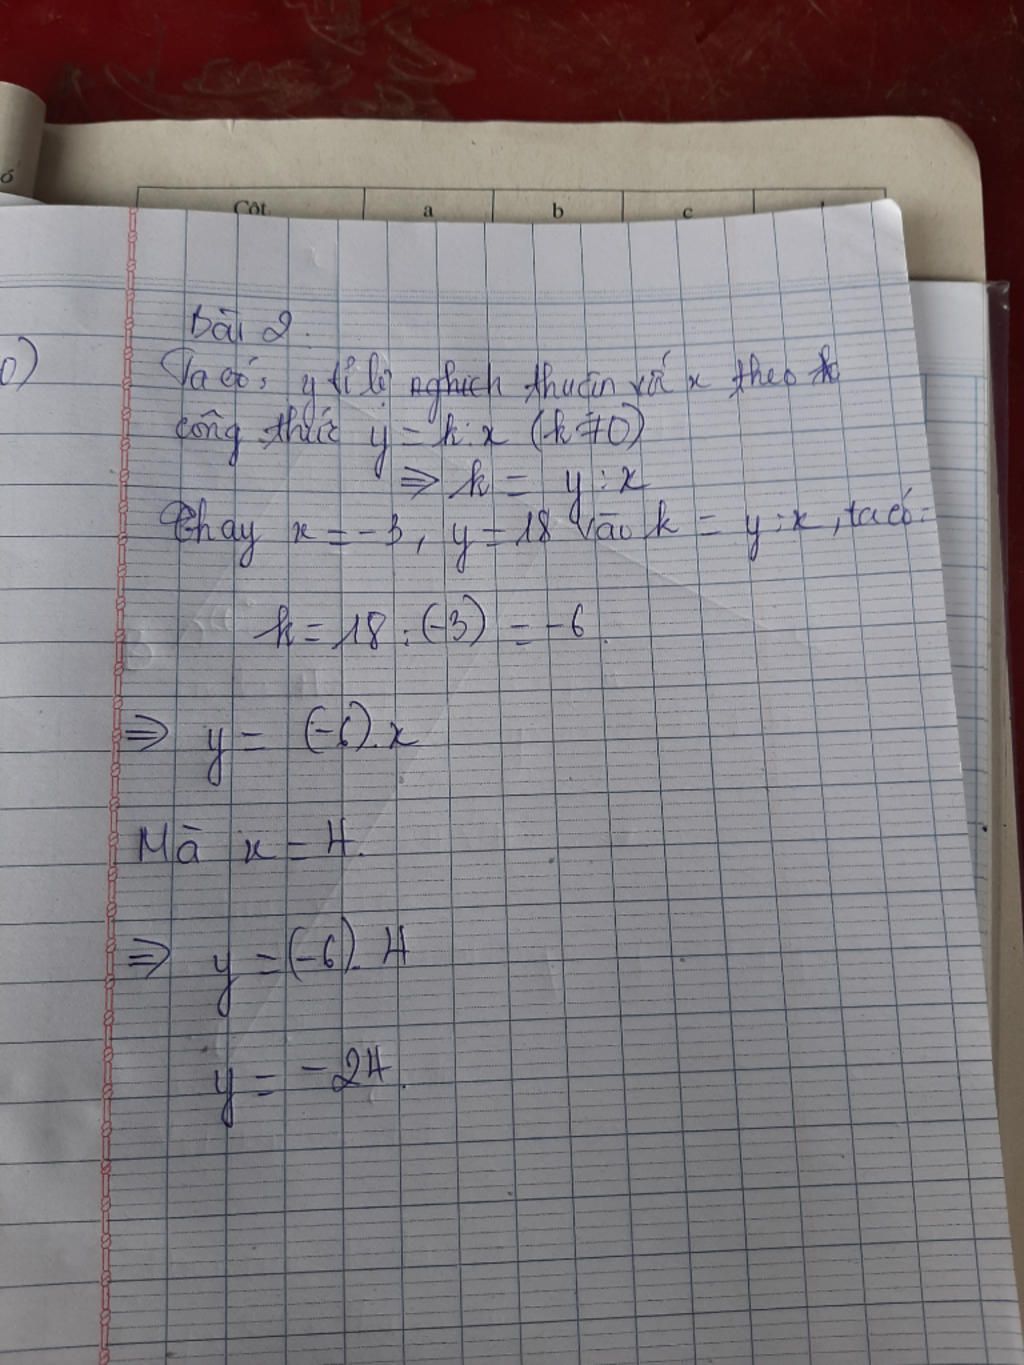 ó
Cột a b c
0)
Bài 2.
Ta có: y tỉ lệ nghịch thuận với x theo k
công thức y = k.x (k ≠ 0)
⇒ k = y : x
Thay x = -3, y = 18 vào k = y : x, ta có:
k = 18 : (-3) = -6.
⇒ y = (-6).x
Mà x = 4.
⇒ y = (-6). 4
y = -24.